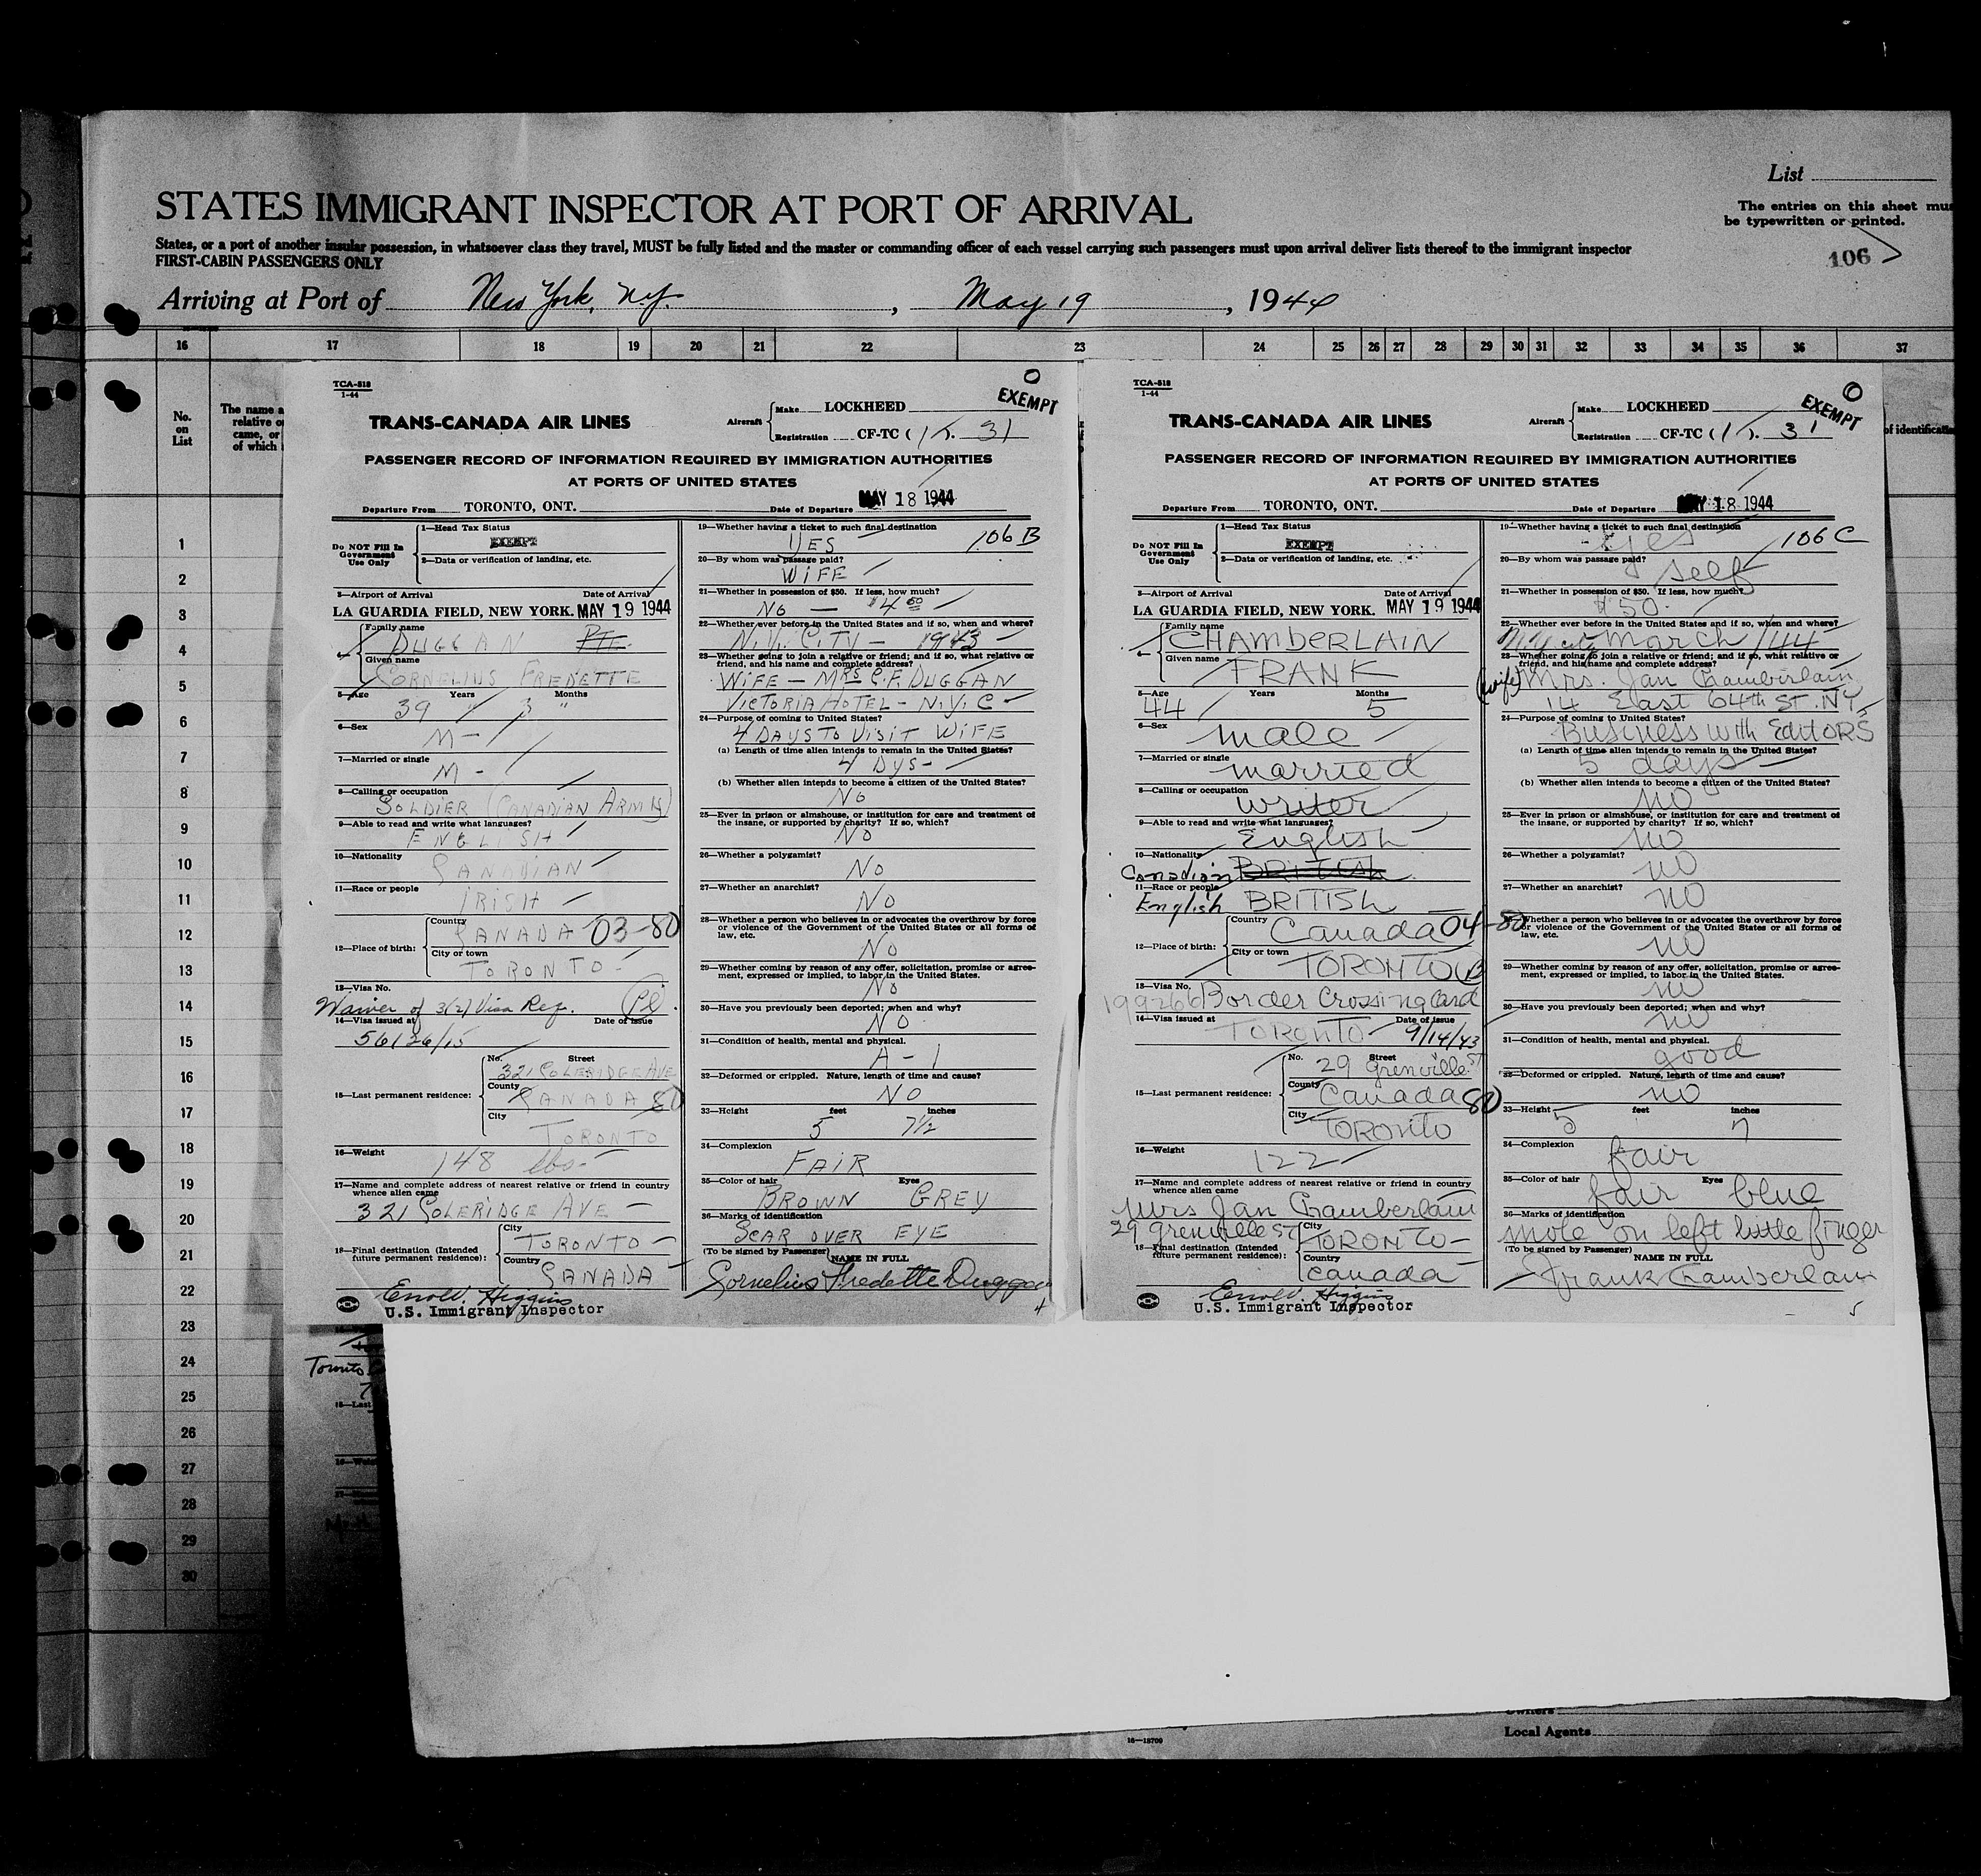 List
STATES IMMIGRANT INSPECTOR AT PORT OF ARRIVAL
The entries on this sheet mus
be typewritten or printed.
States, or a port of another insular possession, in whatsoever class they travel, MUST be fully listed and the master or commanding officer of each vessel carrying such passengers must upon arrival deliver lists thereof to the immigrant inspector
FIRST-CABIN PASSENGERS ONLY
106
Arriving at Port of New York, N.Y., May 19, 1944
16 17 18 19 20 21 22 23 24 25 26 27 28 29 30 31 32 33 34 35 36 37
No.
on
List
The name a
relative o
came, or
of which
of identificatio
1
2
3
4
5
6
7
8
9
10
11
12
13
14
15
16
17
18
19
20
21
22
23
24
25
26
27
28
29
30
TCA-518
1-44
EXEMPT
TRANS-CANADA AIR LINES
Aircraft
Make LOCKHEED
Registration CF-TC (1 T. 31
PASSENGER RECORD OF INFORMATION REQUIRED BY IMMIGRATION AUTHORITIES
AT PORTS OF UNITED STATES
Departure From TORONTO, ONT.
Date of Departure MAY 18 1944
Do NOT Fill In
Government
Use Only
1—Head Tax Status
EXEMPT
2—Data or verification of landing, etc.
3—Airport of Arrival Date of Arrival
LA GUARDIA FIELD, NEW YORK. MAY 19 1944
4— Family name
DUGGAN PTE
Given name
CORNELIUS FREDETTE
5—Age Years Months
39 " 3 "
6—Sex
M-
7—Married or single
M-
8—Calling or occupation
SOLDIER (CANADIAN ARMY)
9—Able to read and write what languages?
ENGLISH
10—Nationality
CANADIAN
11—Race or people
IRISH
12—Place of birth:
Country
CANADA 03-80
City or town
TORONTO-
13—Visa No.
Waiver of 3(2) Visa Req.
14—Visa issued at Date of issue
56126/15
15—Last permanent residence:
No. Street
321 COLERIDGE AVE
County
CANADA 80
City
TORONTO
16—Weight
148 lbs-
17—Name and complete address of nearest relative or friend in country
whence alien came
321 COLERIDGE AVE —
18—Final destination (Intended
future permanent residence):
City
TORONTO —
Country
CANADA
Errol V. Higgins
U.S. Immigrant Inspector
19—Whether having a ticket to such final destination
YES 106 B
20—By whom was passage paid?
WIFE
21—Whether in possession of $50. If less, how much?
NO — $4 00
22—Whether ever before in the United States and if so, when and where?
N.Y. CITY — 1943 —
23—Whether going to join a relative or friend; and if so, what relative or
friend, and his name and complete address?
WIFE — MRS C.F. DUGGAN
VICTORIA HOTEL - N.Y.C -
24—Purpose of coming to United States?
4 DAYS TO VISIT WIFE
(a) Length of time alien intends to remain in the United States?
4 DYS-
(b) Whether alien intends to become a citizen of the United States?
NO
25—Ever in prison or almshouse, or institution for care and treatment of
the insane, or supported by charity? If so, which?
NO
26—Whether a polygamist?
NO
27—Whether an anarchist?
NO
28—Whether a person who believes in or advocates the overthrow by force
or violence of the Government of the United States or all forms of
law, etc.
NO
29—Whether coming by reason of any offer, solicitation, promise or agree-
ment, expressed or implied, to labor in the United States.
NO
30—Have you previously been deported; when and why?
NO
31—Condition of health, mental and physical.
A-1
32—Deformed or crippled. Nature, length of time and cause?
NO
33—Height feet inches
5 7½
34—Complexion
FAIR
35—Color of hair Eyes
BROWN GREY
36—Marks of identification
SCAR OVER EYE
(To be signed by Passenger) NAME IN FULL
Cornelius Fredette Duggan
4
TCA-518
1-44
EXEMPT
TRANS-CANADA AIR LINES
Aircraft
Make LOCKHEED
Registration CF-TC (1 T. 31
PASSENGER RECORD OF INFORMATION REQUIRED BY IMMIGRATION AUTHORITIES
AT PORTS OF UNITED STATES
Departure From TORONTO, ONT.
Date of Departure MAY 18 1944
Do NOT Fill In
Government
Use Only
1—Head Tax Status
EXEMPT
2—Data or verification of landing, etc.
3—Airport of Arrival Date of Arrival
LA GUARDIA FIELD, NEW YORK. MAY 19 1944
4— Family name
CHAMBERLAIN
Given name
FRANK
5—Age Years Months
44 5
6—Sex
male
7—Married or single
married
8—Calling or occupation
writer
9—Able to read and write what languages?
English
10—Nationality
Canadian BRITISH
11—Race or people
English BRITISH
12—Place of birth:
Country
Canada 04-80
City or town
TORONTO
13—Visa No.
199266 Border Crossing Card
14—Visa issued at Date of issue
TORONTO 9/14/43
15—Last permanent residence:
No. Street
29 Grenville ST
County
Canada 80
City
TORONTO
16—Weight
122
17—Name and complete address of nearest relative or friend in country
whence alien came
Mrs Jan Chamberlain
29 Grenville ST
18—Final destination (Intended
future permanent residence):
City
TORONTO-
Country
Canada
Errol V. Higgins
U.S. Immigrant Inspector
19—Whether having a ticket to such final destination
yes 106 C
20—By whom was passage paid?
self
21—Whether in possession of $50. If less, how much?
$50.
22—Whether ever before in the United States and if so, when and where?
N.Y. city March /44
23—Whether going to join a relative or friend; and if so, what relative or
friend, and his name and complete address?
(wife) Mrs. Jan Chamberlain
14 East 64th ST. NY
24—Purpose of coming to United States?
Business with Editors
(a) Length of time alien intends to remain in the United States?
5 days
(b) Whether alien intends to become a citizen of the United States?
no
25—Ever in prison or almshouse, or institution for care and treatment of
the insane, or supported by charity? If so, which?
no
26—Whether a polygamist?
no
27—Whether an anarchist?
no
28—Whether a person who believes in or advocates the overthrow by force
or violence of the Government of the United States or all forms of
law, etc.
no
29—Whether coming by reason of any offer, solicitation, promise or agree-
ment, expressed or implied, to labor in the United States.
no
30—Have you previously been deported; when and why?
no
31—Condition of health, mental and physical.
good
32—Deformed or crippled. Nature, length of time and cause?
no
33—Height feet inches
5 7
34—Complexion
fair
35—Color of hair Eyes
fair blue
36—Marks of identification
mole on left little finger
(To be signed by Passenger) NAME IN FULL
Frank Chamberlain
5
Toronto
15—Last
Owners
Local Agents
16—18709